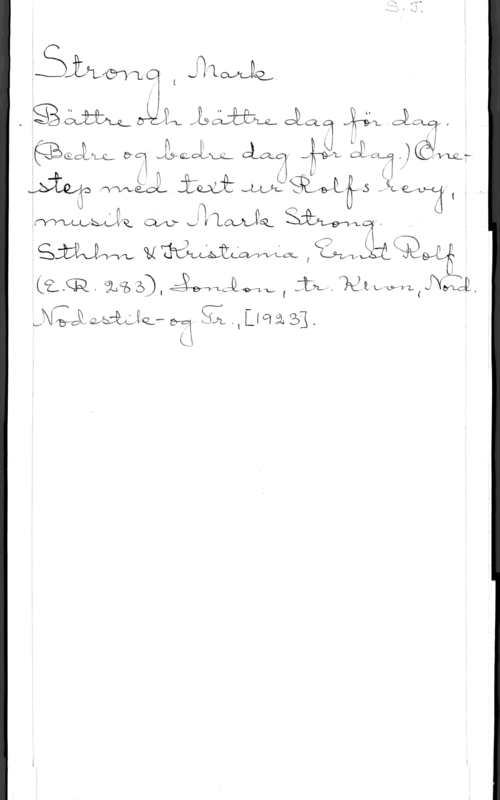 S. J.
Strong, Mark
Bättre och bättre dag för dag.
(Bedre og bedre dag for dag.) One-
step med text ur Rolfs revy,
musik av Mark Strong.
Sthlm & Kristiania, Ernst Rolf
(E.R. 283), London, tr. Khvn, Nord.
Nodestik- og Tr., [1923].